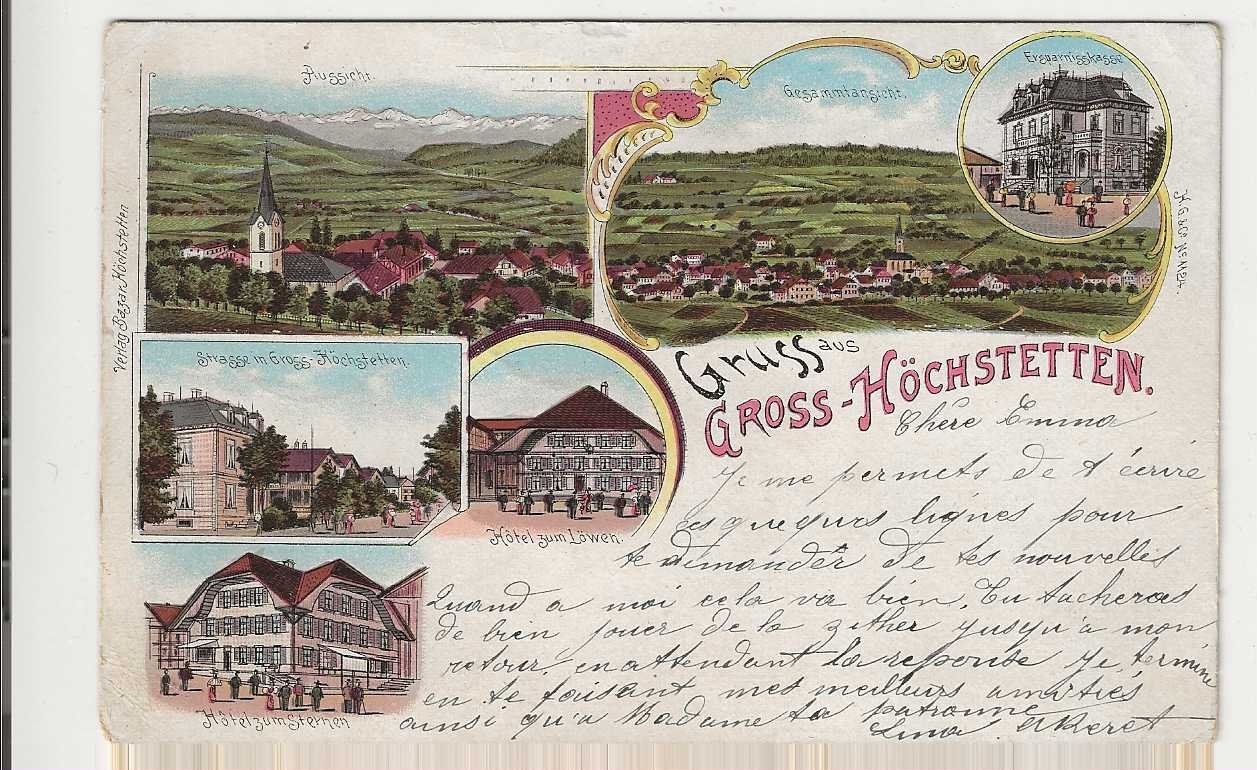 Aussicht.
Gesammtansicht.
Ersparnisskasse
H. G. & Co. No.
Verlag Bazar Höchstetten
Strasse in Gross-Höchstetten.
Hôtel zum Löwen.
Hôtel zum Sternen
Gruss aus
GROSS-HÖCHSTETTEN.
Chère Emma
Je me permets de t'écrire
ces queques lignes pour
te demander de tes nouvelles
Quand a moi cela va bien. Tu tacheras
de bien jouer de la zither jusqu'a mon
retour, en attendant la reponse je termine
en te faisant mes meilleurs amitiés
ainsi qu'a Madame ta patronne
Lina